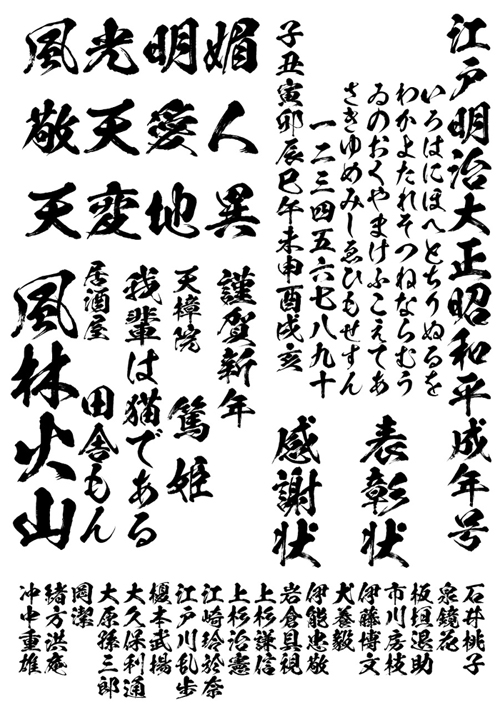 江戸明治大正昭和平成年号
いろはにほへとちりぬるを
わかよたれそつねならむう
ゐのおくやまけふこえてあ
さきゆめみしゑひもせすん
一二三四五六七八九十
子丑寅卯辰巳午未申酉戌亥
表彰状
感謝状
媚人異
明愛地
光天変
風敬天
謹賀新年
天樟院 篤姫
我輩は猫である
居酒屋 田舎もん
風林火山
石井桃子
泉鏡花
板垣退助
市川房枝
伊藤博文
犬養毅
伊能忠敬
岩倉具視
上杉謙信
上杉治憲
江崎玲於奈
江戸川乱歩
榎本武揚
大久保利通
大原孫三郎
岡潔
緒方洪庵
沖中重雄